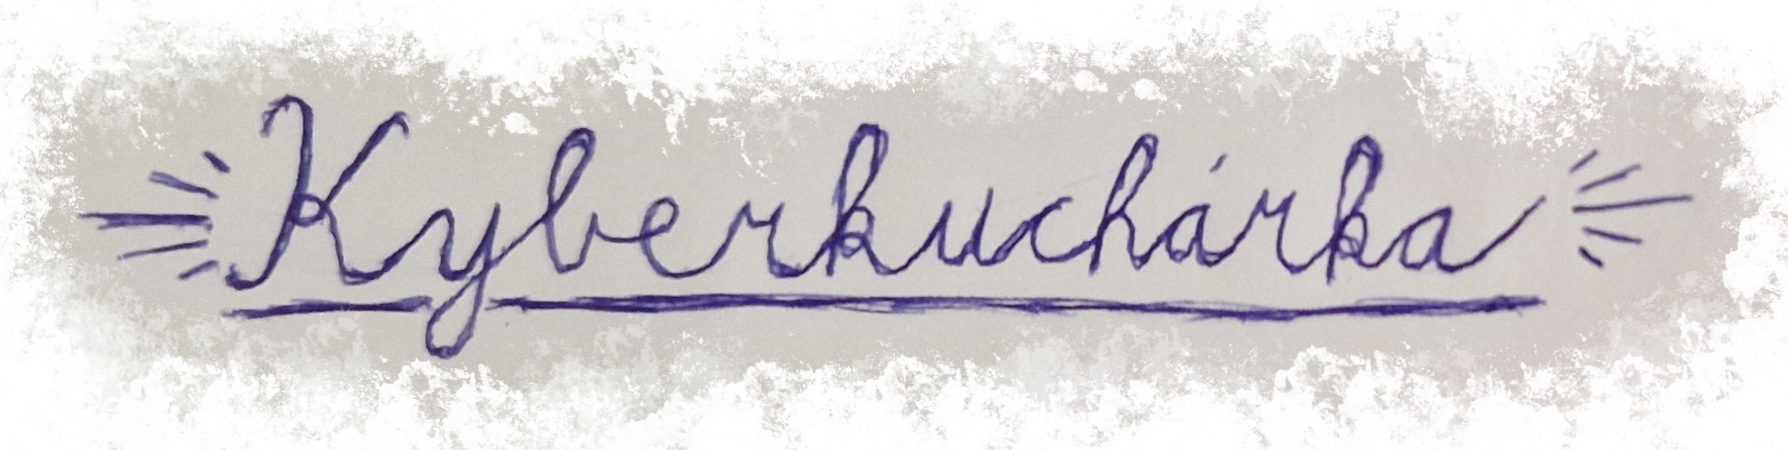 Kyberkuchárka